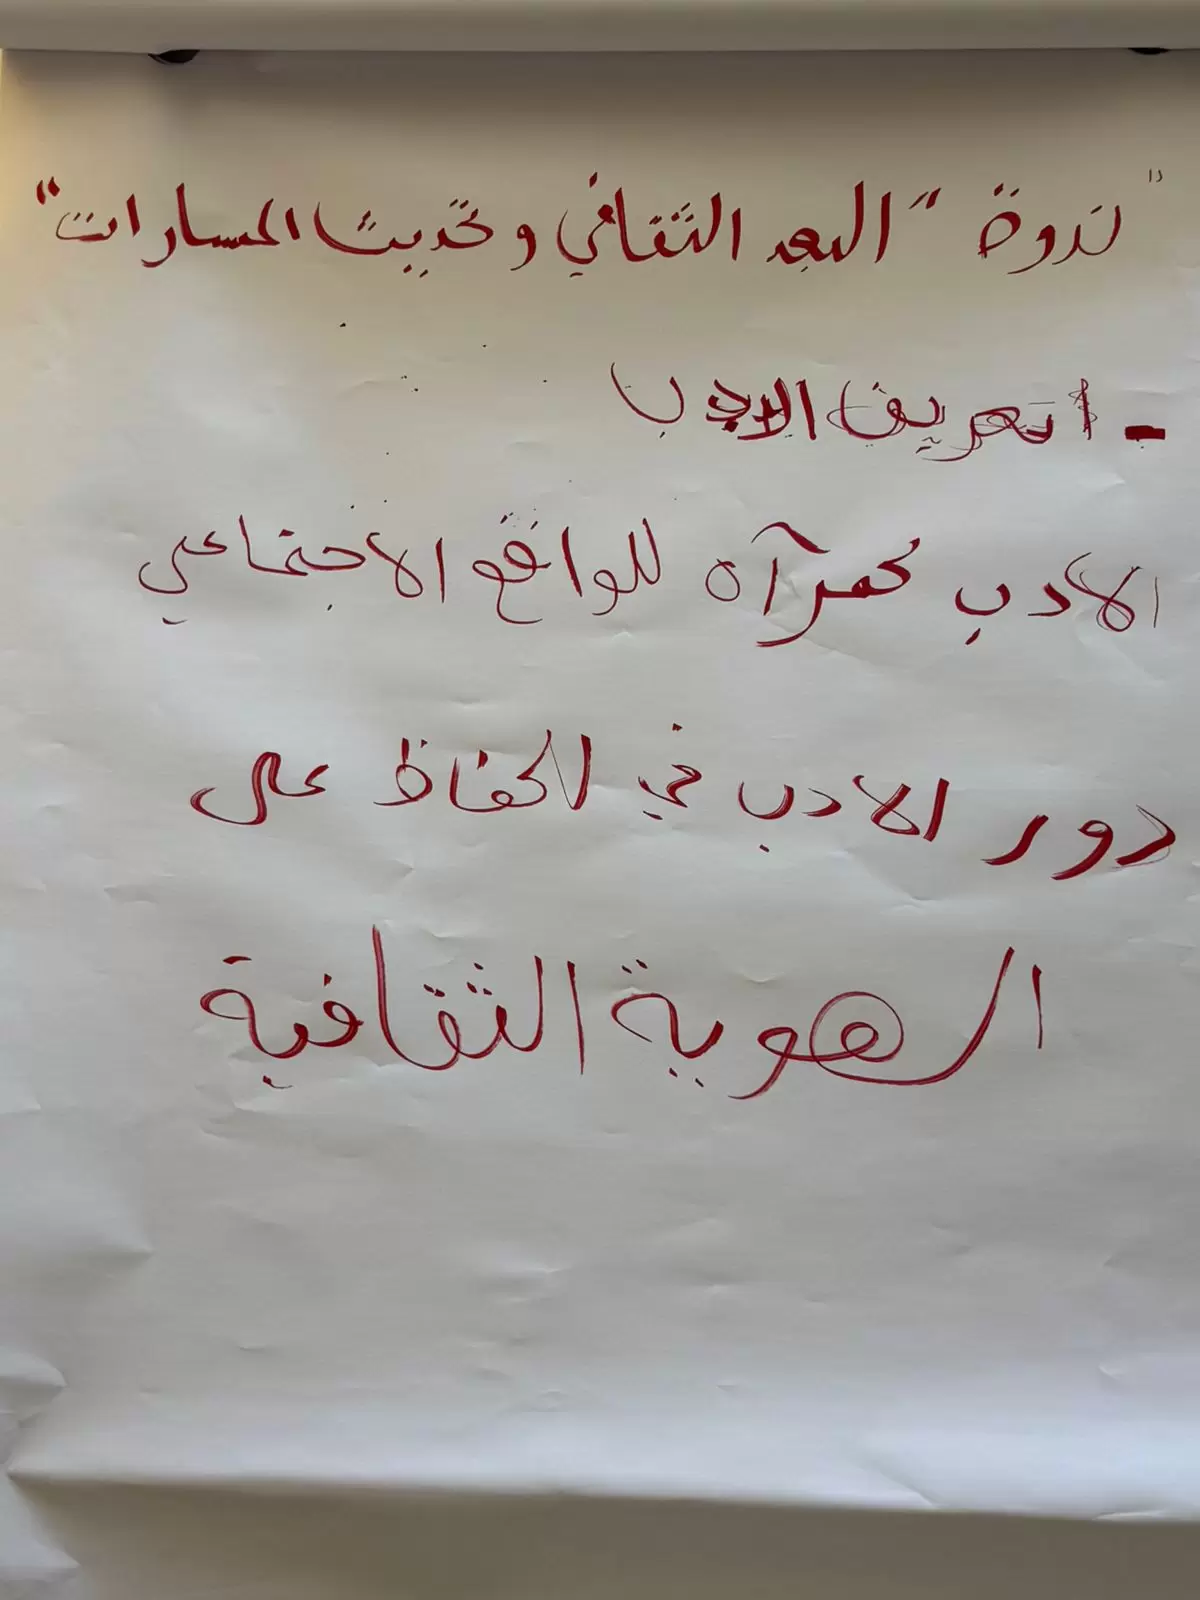 " ندوة " البعد الثقافي وتحديث المسارات "
- ا تعريف الادب
الادب كمرآه للواقع الاجتماعي
دور الادب في الحفاظ على
الهوية الثقافية